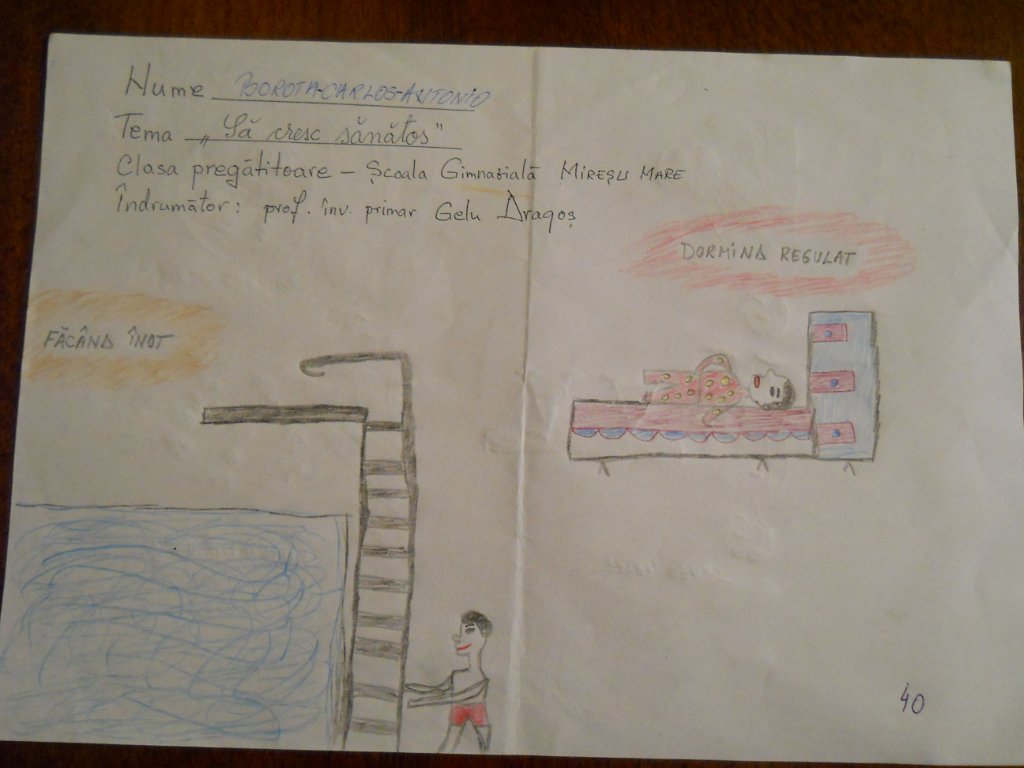 Nume BOROTA-CARLOS-ANTONIO
Tema „Să cresc sănătos"
Clasa pregătitoare – Școala Gimnazială MIREȘU MARE
Îndrumător: prof. înv. primar Gelu Dragoș
DORMIND REGULAT
FĂCÂND ÎNOT
40